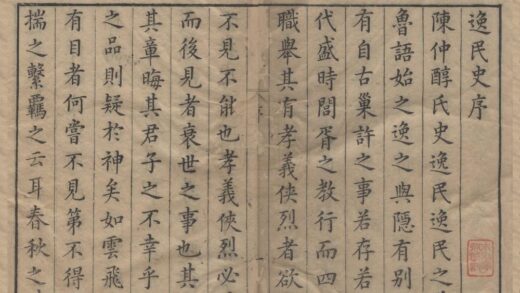 逸民史序
陳仲醇氏史逸民逸民之
魯語始之逸之與隱有別
有自古巢許之事若存若
代盛時閭胥之教行而四
職舉其有孝義俠烈者欲
不見不能也孝義俠烈必
而後見者衰世之事也其
其章晦其君子之不幸乎
之品則疑於神矣如雲飛
有目者何嘗不見第不得
揣之繫羈之云耳春秋之